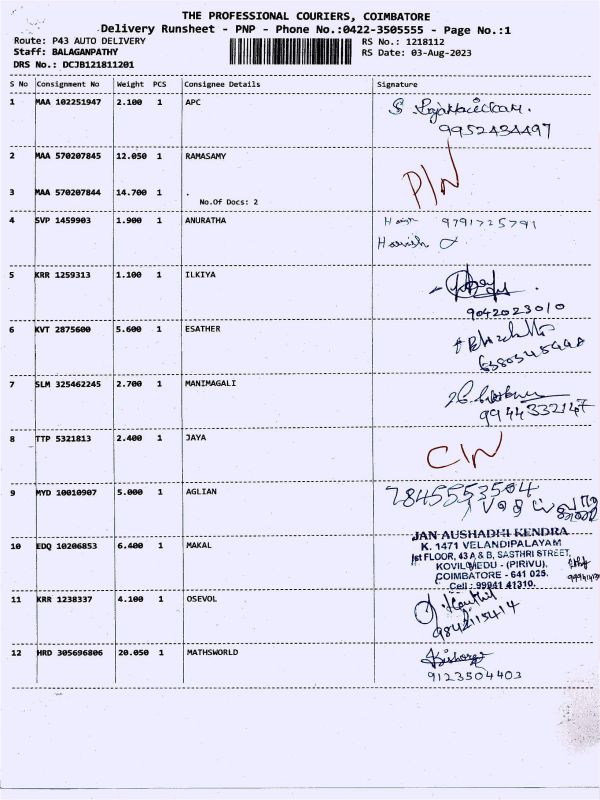 THE PROFESSIONAL COURIERS, COIMBATORE
Delivery Runsheet - PNP - Phone No.:0422-3505555 - Page No.:1
Route: P43 AUTO DELIVERY RS No.: 1218112
Staff: BALAGANPATHY RS Date: 03-Aug-2023
DRS No.: DCJB121811201
S No Consignment No Weight PCS Consignee Details Signature
1 MAA 102251947 2.100 1 APC
9952434497
2 MAA 570207845 12.050 1 RAMASAMY
P/N
3 MAA 570207844 14.700 1 .
No.Of Docs: 2
4 SVP 1459903 1.900 1 ANURATHA 9791725791
Harrish
5 KRR 1259313 1.100 1 ILKIYA
9042023010
6 KVT 2875600 5.600 1 ESATHER
7 SLM 325462245 2.700 1 MANIMAGALI
9944332147
8 TTP 5321813 2.400 1 JAYA
C/N
9 MYD 10010907 5.000 1 AGLIAN 7845553504
10 EDQ 10206853 6.400 1 MAKAL
JAN AUSHADHI KENDRA
K. 1471 VELANDIPALAYAM
Ist FLOOR, 43 A & B, SASTHRI STREET,
KOVILMEDU - (PIRIVU),
COIMBATORE - 641 025.
Cell : 99941 41310.
11 KRR 1238337 4.100 1 OSEVOL
9842115414
12 HRD 305696806 20.050 1 MATHSWORLD
9123504403